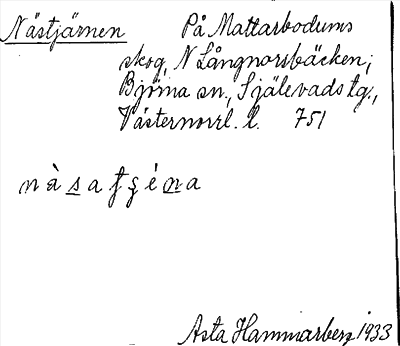 Nästjärnen På Mattarbodums
skog, N Långnorsbäcken;
Björna sn., Själevads tg.,
Västernorrl. l. 751
nàsatʂéna
Asta Hammarberg 1933